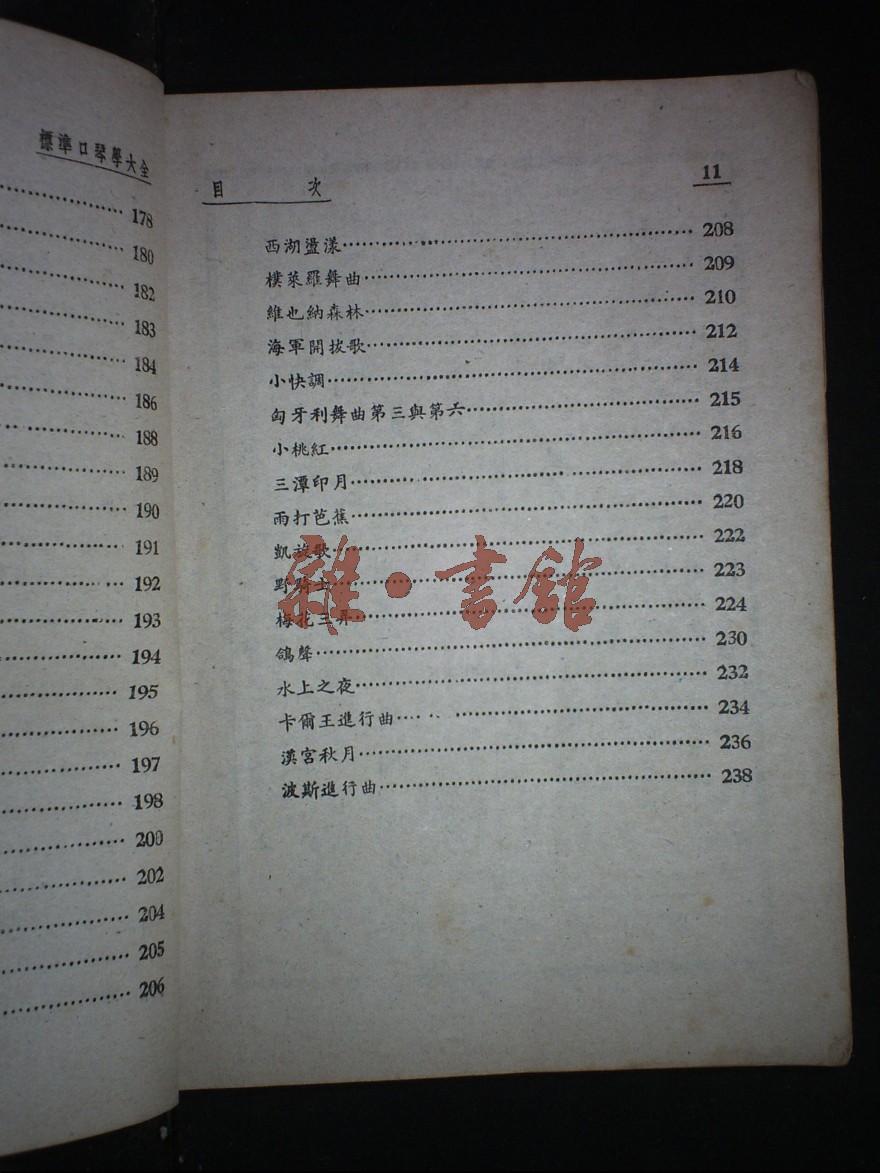 標準口琴學大全
178
180
182
183
184
186
188
189
190
191
192
193
194
195
196
197
198
200
202
204
205
206
目次 11
西湖盪漾 208
樸萊羅舞曲 209
維也納森林 210
海軍開拔歌 212
小快調 214
匈牙利舞曲第三與第六 215
小桃紅 216
三潭印月 218
雨打芭蕉 220
凱旋歌 222
野騎士 223
梅花三弄 224
鴿聲 230
水上之夜 232
卡爾王進行曲 234
漢宮秋月 236
波斯進行曲 238
雜·書館